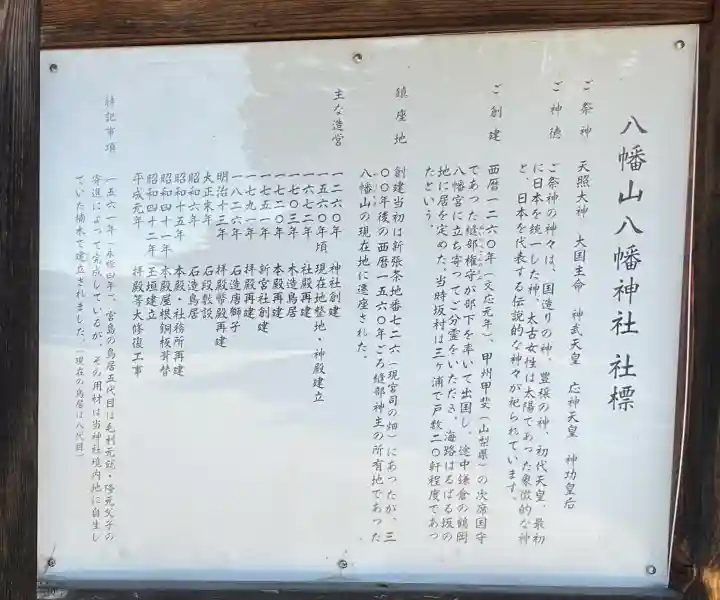 八幡山八幡神社 社標
ご祭神 天照大神 大国主命 神武天皇 応神天皇 神功皇后
ご神徳 ご祭神の神々は、国造りの神、豊穣の神、初代天皇、最初
に日本を統一した神、太古女性は太陽であった象徴的な神
と、日本を代表する伝説的な神々が祀られています。
ご創建 西暦一二六〇年（文応元年）、甲州甲斐（山梨県）の次席国守
であった縫部権守が部下を率いて出国し、途中鎌倉の鶴岡
八幡宮に立ち寄ってご分霊をいただき、海路はるばる坂の
地に居を定めた。当時坂村は三ヶ浦で戸数二〇軒程度であっ
たという。
鎮座地 創建当初は新張条地番七二六（現宮司の畑）にあったが、三
〇〇年後の西暦一五六〇年ごろ縫部神主の所有地であった
八幡山の現在地に遷座された。
主な造営 一二六〇年 神社創建
一五六〇年頃 現在地整地・神殿建立
一六七二年 社殿再建
一七〇三年 木造鳥居
一七二〇年 本殿再建
一七五一年 新宮社創建
一七九一年 拝殿再建
一八二六年 石造唐獅子
明治十三年 拝殿幣殿再建
大正末年 石段敷設
昭和六年 石造鳥居
昭和十五年 本殿・社務所再建
昭和四十二年 本殿屋根銅板葺替
昭和四十二年 玉垣建立
平成元年 拝殿等大修復工事
特記事項 一五六一年（永禄四年）、宮島の鳥居五代目は毛利元就・隆元父子の
寄進によって完成しているが、その用材は当神社境内地に自生し
ていた楠木で建立されました。（現在の鳥居は八代目）